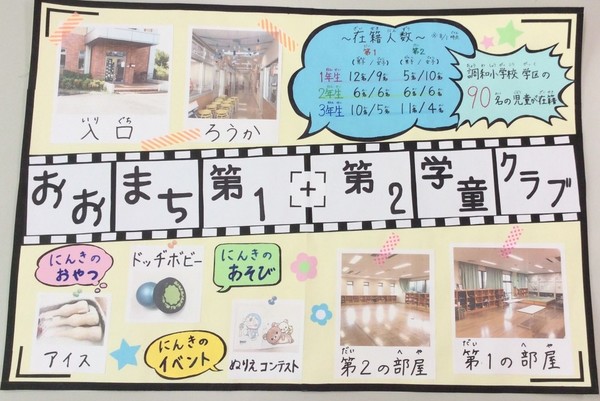 いり ぐち
入口
ろうか
～在籍人数～
第1 第2
1年生 12名/9名 5名/10名
2年生 6名/6名 6名/6名
3年生 10名/5名 11名/4名
調和小学校 学区の
90名の児童が在籍
おおまち第1+第2学童クラブ
にんきの
おやつ
アイス
ドッヂボビー
にんきの
あそび
にんきの
イベント
ぬりえコンテスト
だい へや
第2の部屋
だい へや
第1の部屋